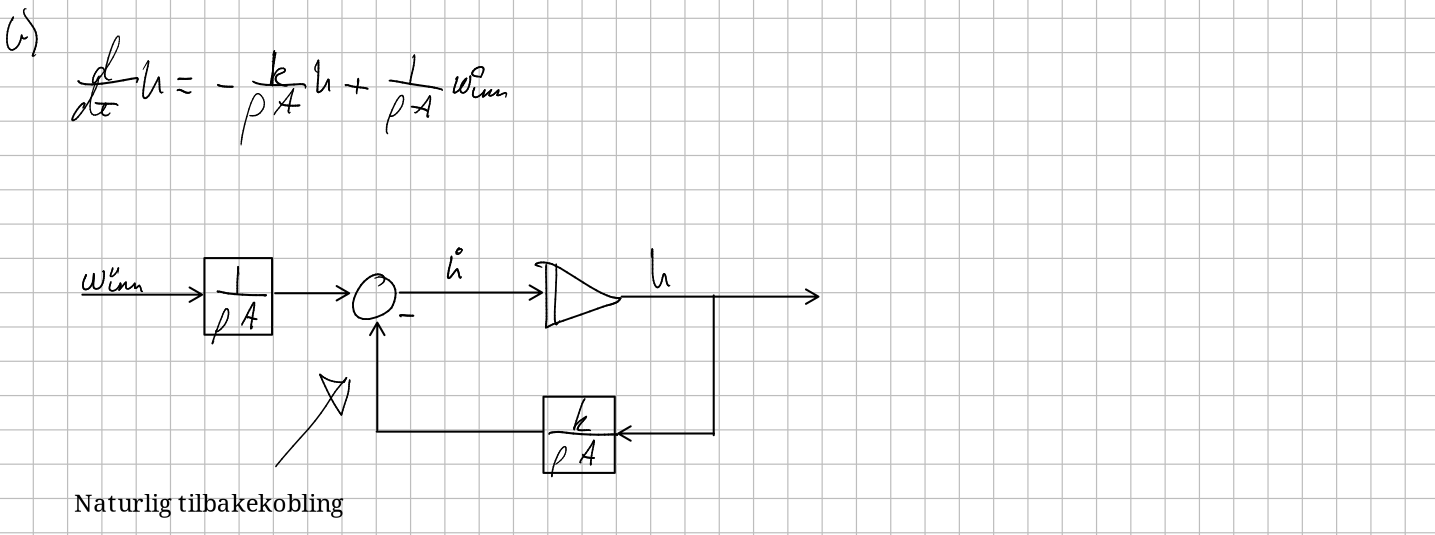 b)
d/dt h = - k/ρA h + 1/ρA w_inn
w_inn 1/ρA ḣ h
-
k/ρA
Naturlig tilbakekobling